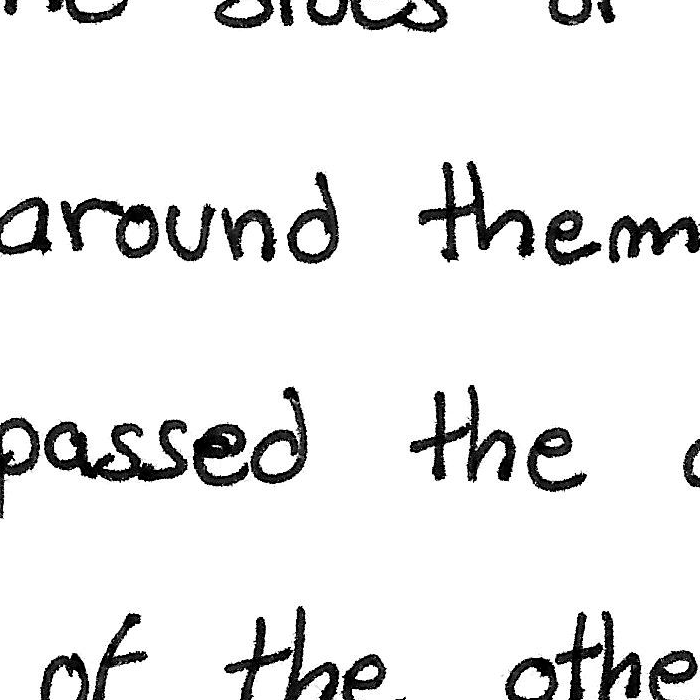 sides
around them
passed the
of the othe